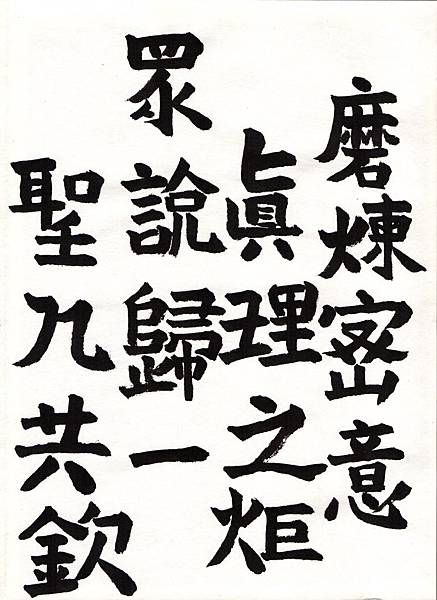 磨煉密意
眞理之炬
眾說歸一
聖凡共欽